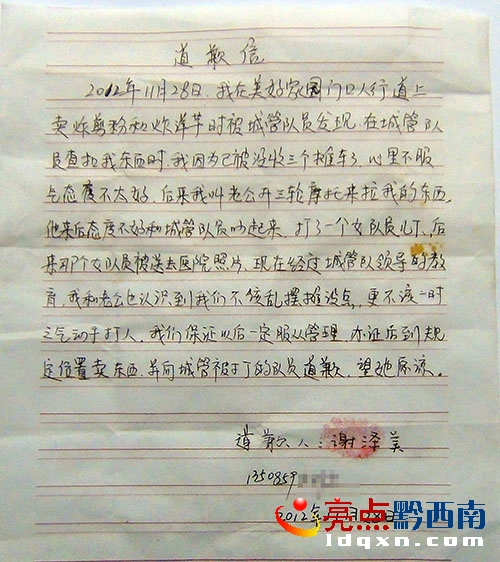 道歉信
2012年11月28日，我在美好家园门口人行道上
卖炸剪粉和炸洋芋时被城管队员发现，在城管队
员查扣我东西时，我因为已被没收三个摊车了，心里不服
气态度不太好，后来我叫老公开三轮摩托来拉我的东西，
他来后态度不好和城管队员吵起来，打了一个女队员几下，后
来那个女队员被送去医院照片，现在经过城管队领导的教
育，我和老公也认识到我们不该乱摆摊设点，更不该一时
之气动手打人，我们保证以后一定服从管理，办证后到规
定位置卖东西，并向城管被打的队员道歉，望她原谅。
道歉人：谢泽美
1350859
2012年 月28日
亮点黔西南
ldqxn.com